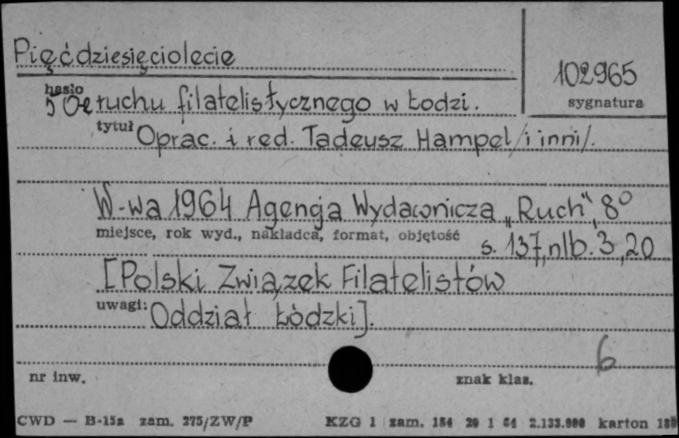 Pięćdziesięciolecie
102965
hasło
sygnatura
50-e ruchu filatelistycznego w Łodzi.
tytuł Oprac. i red. Tadeusz Hampel /i inni/.
W-wa 1964 Agencja Wydawnicza „Ruch", 8°
miejsce, rok wyd., nakładca, format, objętość
s. 137, nlb. 3, 20
[Polski Związek Filatelistów
uwagi: Oddział Łódzki].
6
nr inw.
znak klas.
CWD — B-15a zam. 275/ZW/P
KZG 1 zam. 154 29 1 64 2.133.000 karton